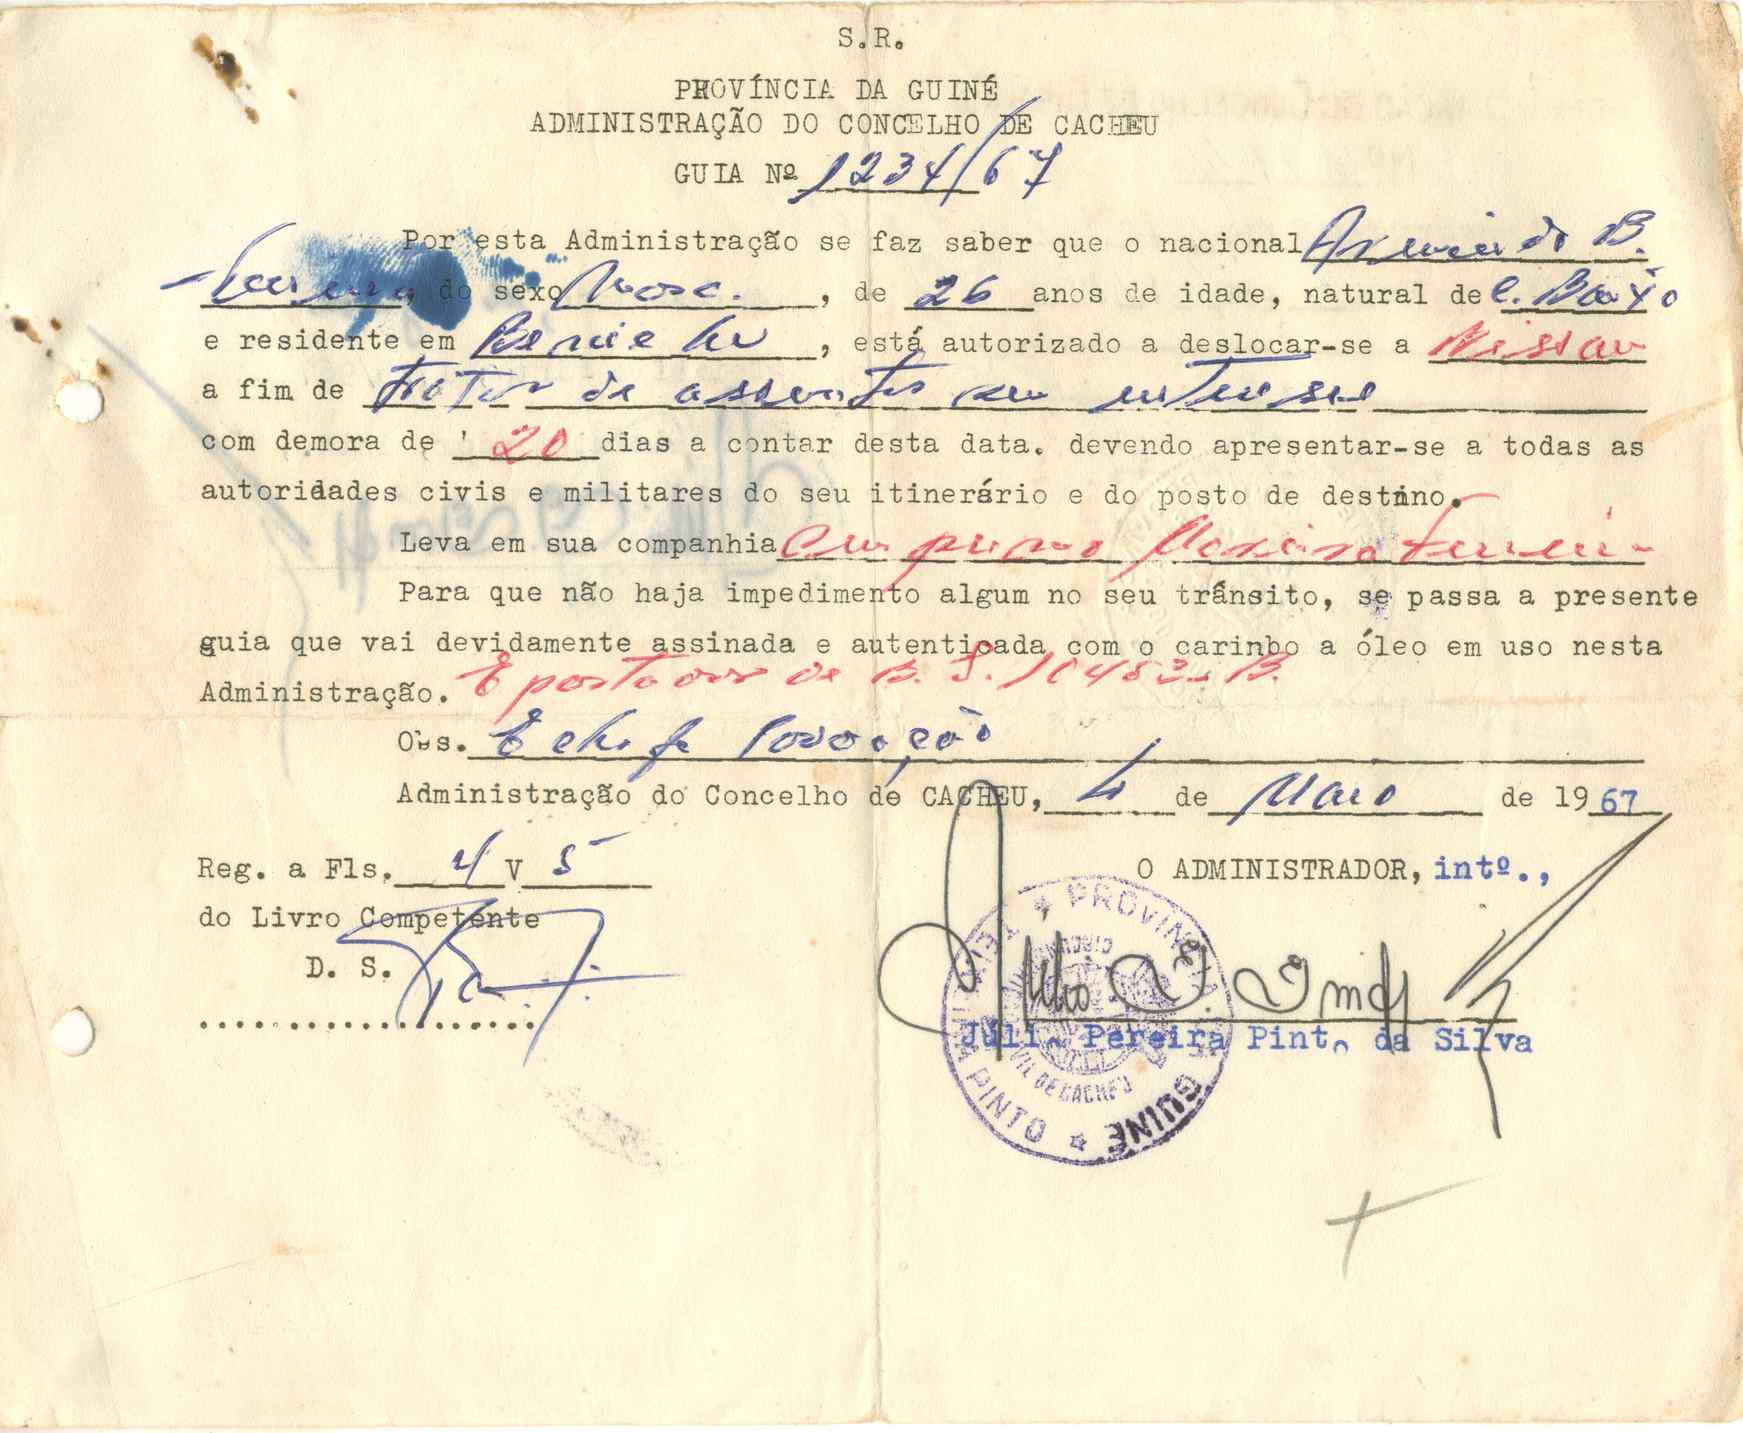 S.R.
PROVÍNCIA DA GUINÉ
ADMINISTRAÇÃO DO CONCELHO DE CACHEU
GUIA Nº 1234/67
Por esta Administração se faz saber que o nacional B.
, do sexo Masc. , de 26 anos de idade, natural de C. Baixo
e residente em , está autorizado a deslocar-se a Bissau
a fim de tratar de assuntos seu interesse
com demora de 20 dias a contar desta data. devendo apresentar-se a todas as
autoridades civis e militares do seu itinerário e do posto de destino.
Leva em sua companhia um primo
Para que não haja impedimento algum no seu trânsito, se passa a presente
guia que vai devidamente assinada e autenticada com o carinbo a óleo em uso nesta
Administração. É portador de B.
Obs. É chefe Povoação
Administração do Concelho de CACHEU, 4 de Maio de 1967
Reg. a Fls. 4 V 5
O ADMINISTRADOR, intº.,
do Livro Competente
D. S.
Júlio Pereira Pinto da Silva
PROVINCIA DE GUINÉ
TEIXEIRA PINTO
CIVIL DE CACHEU